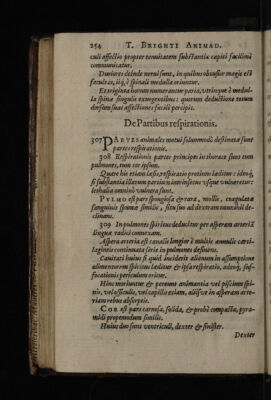 254 T. BRIGHTI ANIMAD.
culi affectio propter tenuitatem substantiæ capiti facilimè
communicatur.
Duriores deinde nerui sunt, in quibus obtusior magis est
facultas, iiq́; è spinali medulla oriuntur.
Ex triginta horum numerantur paria, vtrinque è medul-
la spinæ singulis exurgentibus: quorum deductione totum
dorsum suas affectiones facilè percipit.
De Partibus respirationis.
307 PARTES animales motui solummodò destinatæ sunt
partes respirationis.
308 Respirationis partes principes in thorace sunt tum
pulmones, tum cor ipsum.
Quare his etiam læsis, respiratio protinus læditur: idq́;
si substantia illarum partium intrinsecus vsque vulneretur:
lethalia omninò vulnera sunt.
PVLMO est pars spongiosa & rara, mollis, coagulatæ
sanguinis spumæ similis, situ suo ad dextrum nonnihil de-
clinans.
309 In pulmones spiritus deducitur per asperam arteriā
linguæ radici connexam.
Aspera arteria est canalis longior è multis annulis carti-
lagineis continuata serie in pulmones desinens.
Canitati huius si quid inciderit alienum in assumptione
alimentorum spiritus læditur & ipsa respiratio, adeoq́; suf-
focationis periculum oritur.
Hinc moriuntur & pereunt animantia vel piscium spi-
nis, vel ossiculis, vel capillis etiam, aliisve in asperam arte-
riam rebus absorptis.
COR est pars carnosa, solida, & probè compacta, pyra-
midi propemodum similis.
Huius duo sunt ventriculi, dexter & sinister.
Dexter